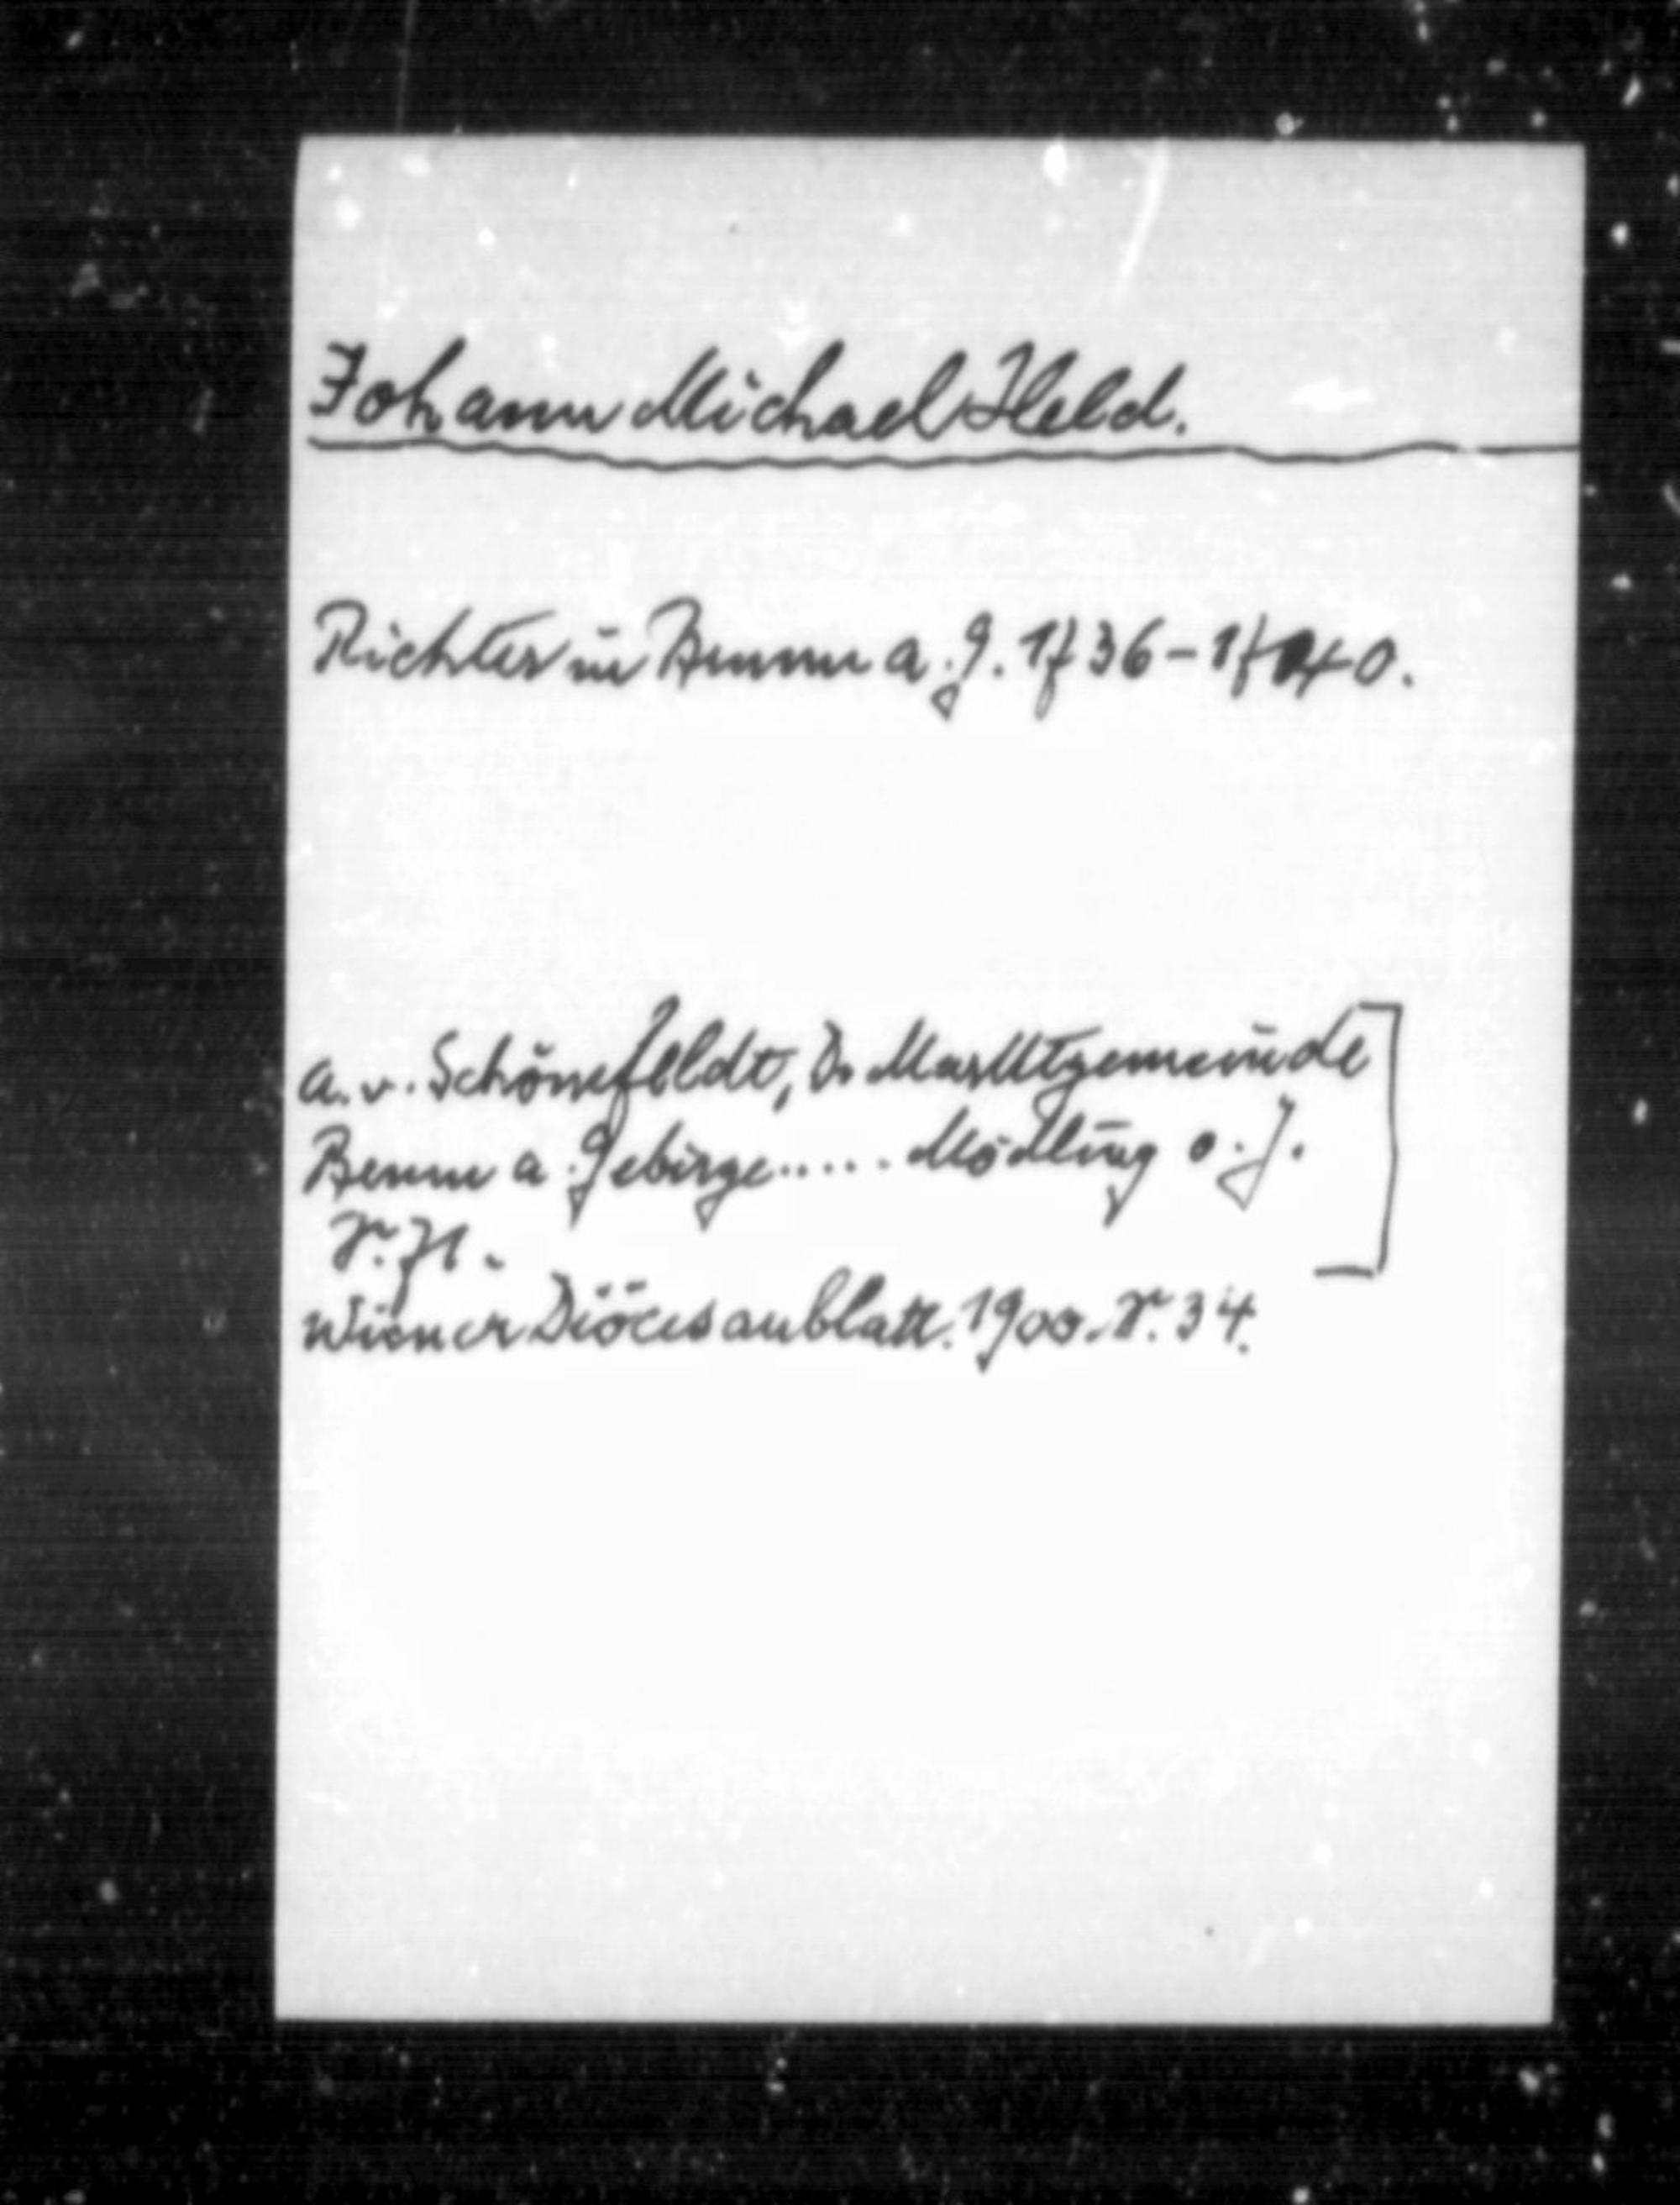 Johann Michael Held.
Richter in Brunn a. G. 1736-1740.
A. v. Schönnfeldt, D. Marktgemeinde
Brunn a. Gebirge..... Mödling o. J.
S. 71.
Wiener Diöcesanblatt. 1900. S. 34.